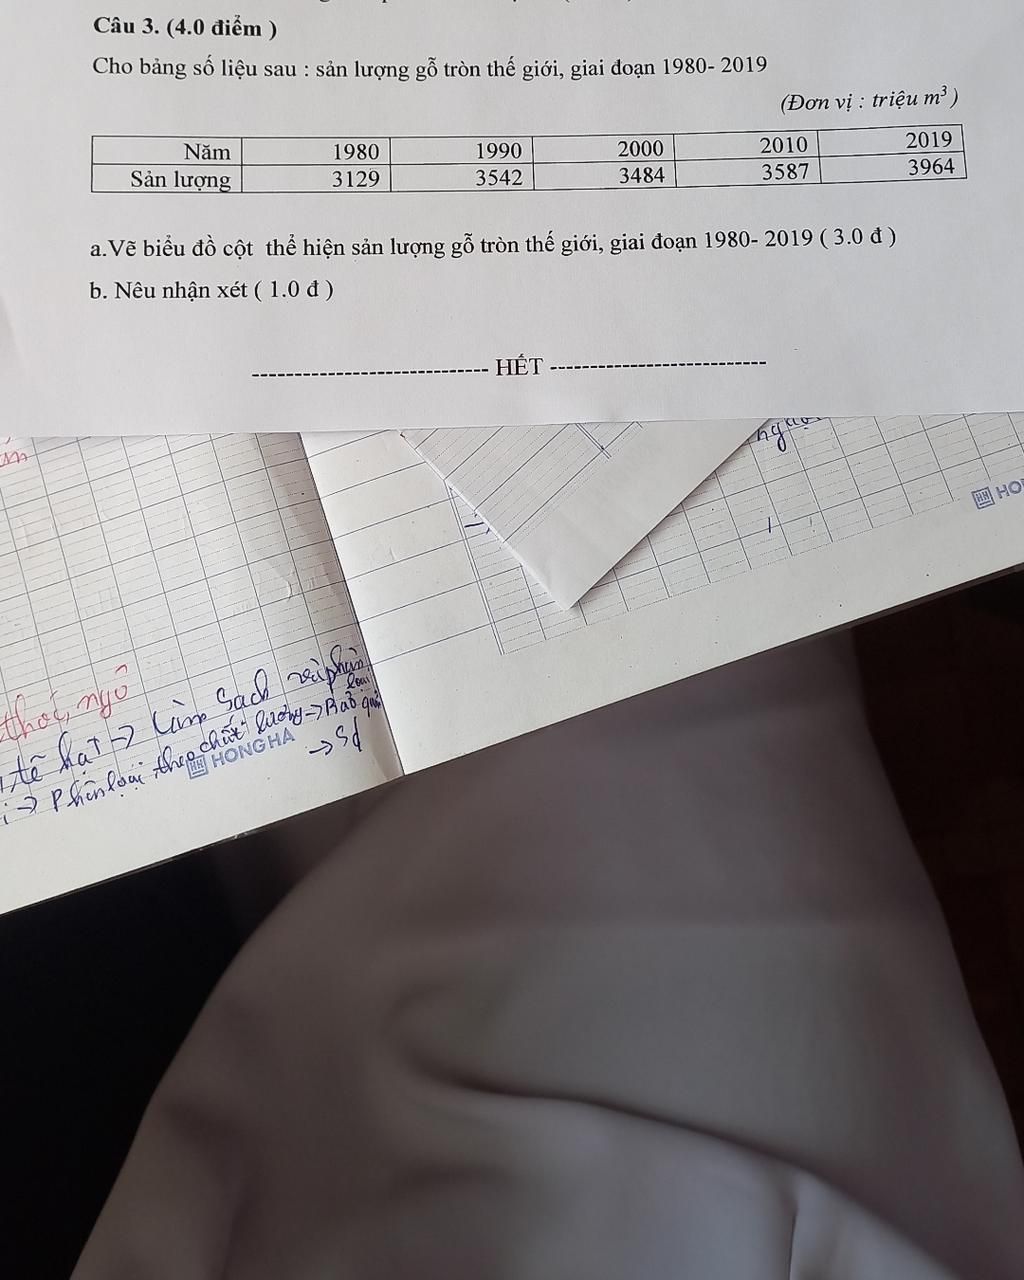 Câu 3. (4.0 điểm )
Cho bảng số liệu sau : sản lượng gỗ tròn thế giới, giai đoạn 1980- 2019
(Đơn vị : triệu m³ )
Năm 1980 1990 2000 2010 2019
Sản lượng 3129 3542 3484 3587 3964
a.Vẽ biểu đồ cột thể hiện sản lượng gỗ tròn thế giới, giai đoạn 1980- 2019 ( 3.0 đ )
b. Nêu nhận xét ( 1.0 đ )
---------------------------- HẾT --------------------------
HO
thoi, ngô
tẽ hạt -> Làm Sạch và phân loại
-> Phân loại theo chất lượng -> Bảo quản
-> Sd
HONG HA